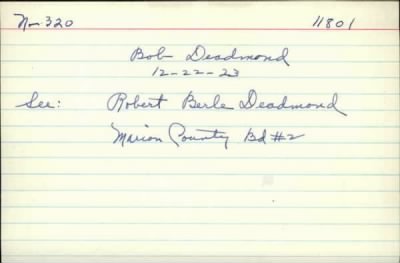 N-320 11801
Bob Deadmond
12-22-23
See: Robert Berle Deadmond
Marion County Bd #2